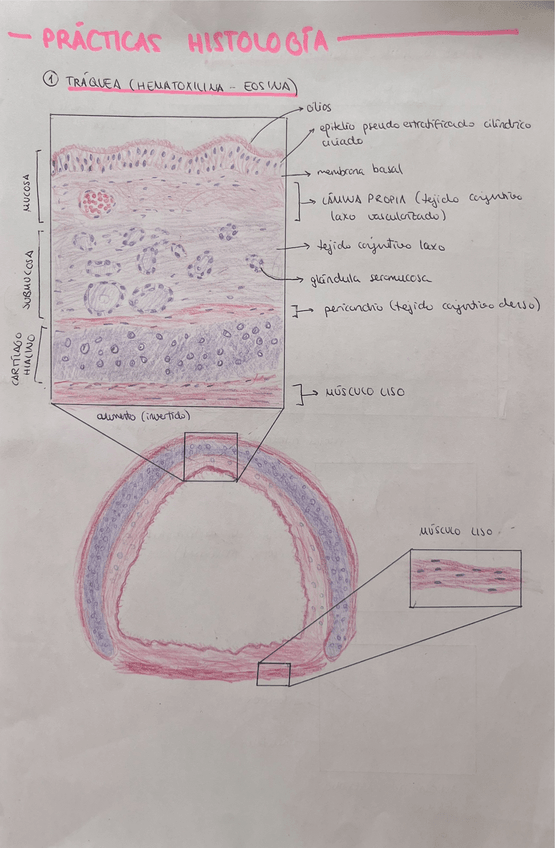 PRÁCTICAS HISTOLOGÍA
① TRÁQUEA (HEMATOXILINA - EOSINA)
cilios
epitelio pseudoestratificado cilíndrico
ciliado
membrana basal
LÁMINA PROPIA (tejido conjuntivo
laxo vascularizado)
MUCOSA
tejido conjuntivo laxo
glándula seromucosa
SUBMUCOSA
pericondrio (tejido conjuntivo denso)
CARTÍLAGO
HIALINO
MÚSCULO LISO
aumento (invertido)
MÚSCULO LISO